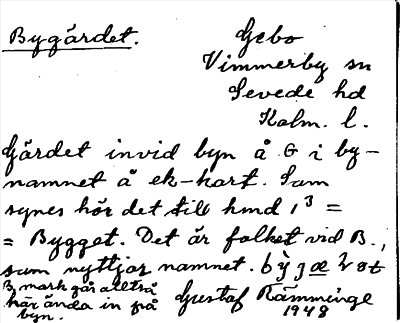 Bygärdet.
Gebo
Vimmerby sn
Sevede hd
Kalm. l.
Gärdet invid byn å G i by-
namnet å ek-kart. Som
synes hör det till hmd 1³ =
= Bygget. Det är folket vid B.,
som nyttjar namnet.
B, mark går alltså
här ända in på
byn.
Gustaf Rämminge
1948